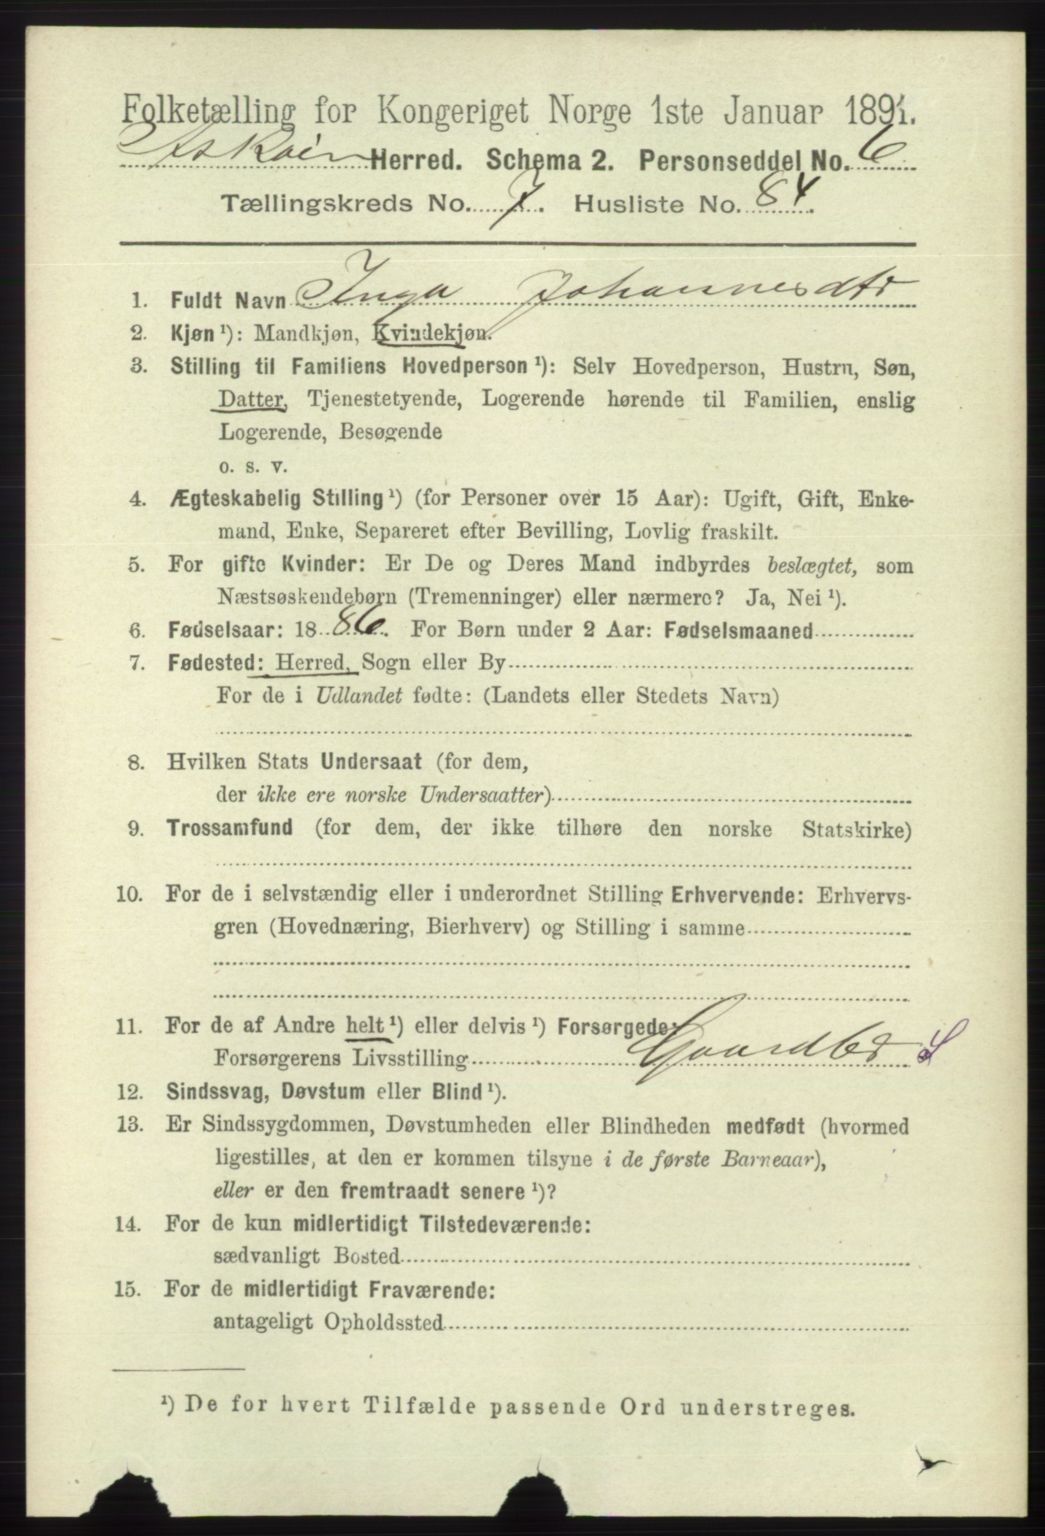 Folketælling for Kongeriget Norge 1ste Januar 1891.
Askøen Herred. Schema 2. Personseddel No. 6
Tællingskreds No. 7. Husliste No. 84.
1. Fuldt Navn Inga Johannesdtr
2. Kjøn ¹): Mandkjøn, Kvindekjøn.
3. Stilling til Familiens Hovedperson ¹): Selv Hovedperson, Hustru, Søn,
Datter, Tjenestetyende, Logerende hørende til Familien, enslig
Logerende, Besøgende
o. s. v.
4. Ægteskabelig Stilling ¹) (for Personer over 15 Aar): Ugift, Gift, Enke-
mand, Enke, Separeret efter Bevilling, Lovlig fraskilt.
5. For gifte Kvinder: Er De og Deres Mand indbyrdes beslægtet, som
Næstsøskendebørn (Tremenninger) eller nærmere? Ja, Nei ¹).
6. Fødselsaar: 1886. For Børn under 2 Aar: Fødselsmaaned
7. Fødested: Herred, Sogn eller By
For de i Udlandet fødte: (Landets eller Stedets Navn)
8. Hvilken Stats Undersaat (for dem,
der ikke ere norske Undersaatter)
9. Trossamfund (for dem, der ikke tilhøre den norske Statskirke)
10. For de i selvstændig eller i underordnet Stilling Erhvervende: Erhvervs-
gren (Hovednæring, Bierhverv) og Stilling i samme
11. For de af Andre helt ¹) eller delvis ¹) Forsørgede:
Forsørgerens Livsstilling Gaardbr
12. Sindssvag, Døvstum eller Blind ¹).
13. Er Sindssygdommen, Døvstumheden eller Blindheden medfødt (hvormed
ligestilles, at den er kommen tilsyne i de første Barneaar),
eller er den fremtraadt senere ¹)?
14. For de kun midlertidigt Tilstedeværende:
sædvanligt Bosted
15. For de midlertidigt Fraværende:
antageligt Opholdssted
¹) De for hvert Tilfælde passende Ord understreges.